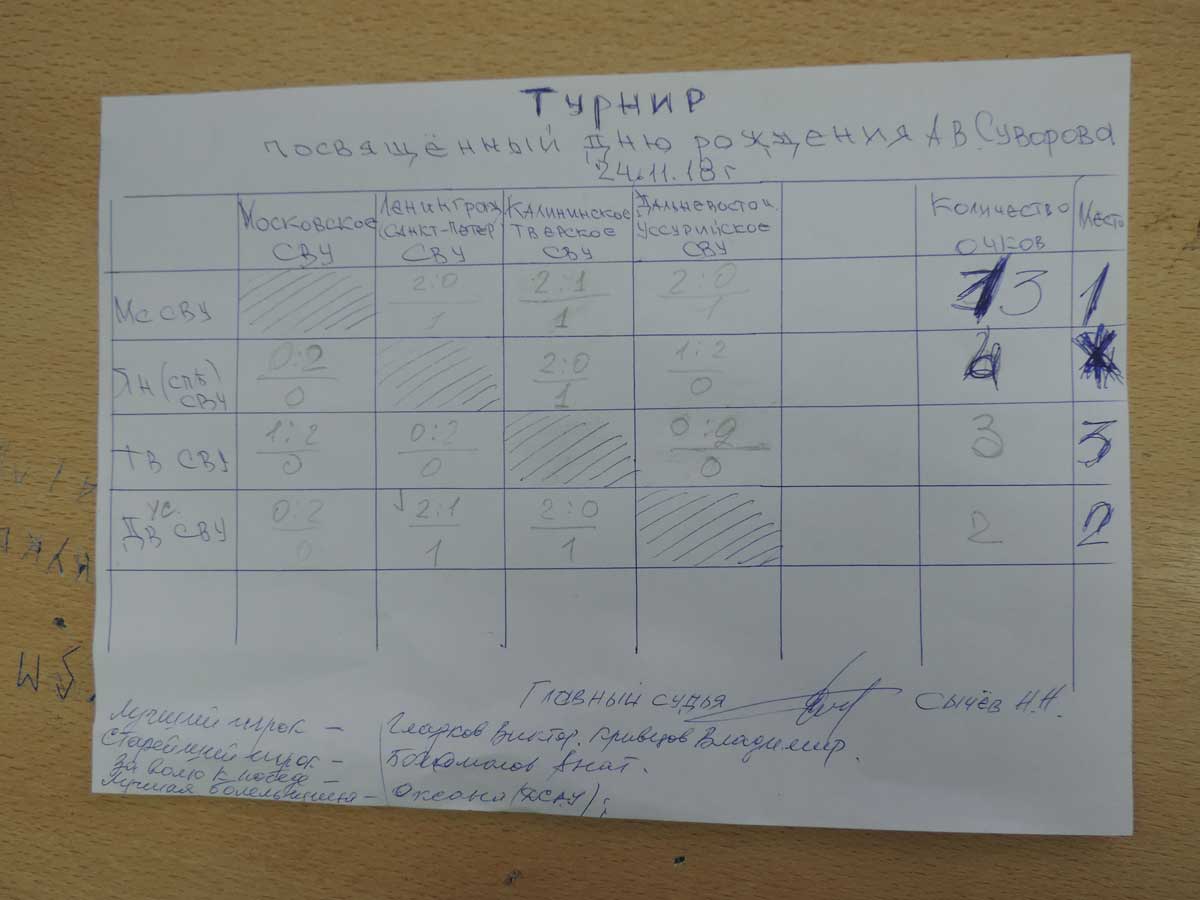 Турнир
посвящённый Дню рождения А.В. Суворова
24.11.18 г
Московское СВУ Ленинград (Санкт-Петер СВУ Калининское Тверское СВУ Дальневосточ. Уссурийское СВУ Количество очков Место
Мс СВУ 2:0 1 2:1 1 2:0 1 3 1
ЛН (СПБ) СВУ 0:2 0 2:0 1 1:2 0
ТВ СВУ 1:2 0 0:2 0 0:2 0 3 3
УС. ДВ СВУ 0:2 0 2:1 1 2:0 1 2 2
Главный судья Сычёв Н.Н.
Лучший игрок – Гладков Виктор. Кривцов Владимир.
Старейший игрок –
За волю к победе – Анат.
Лучшая болельщица – Оксана